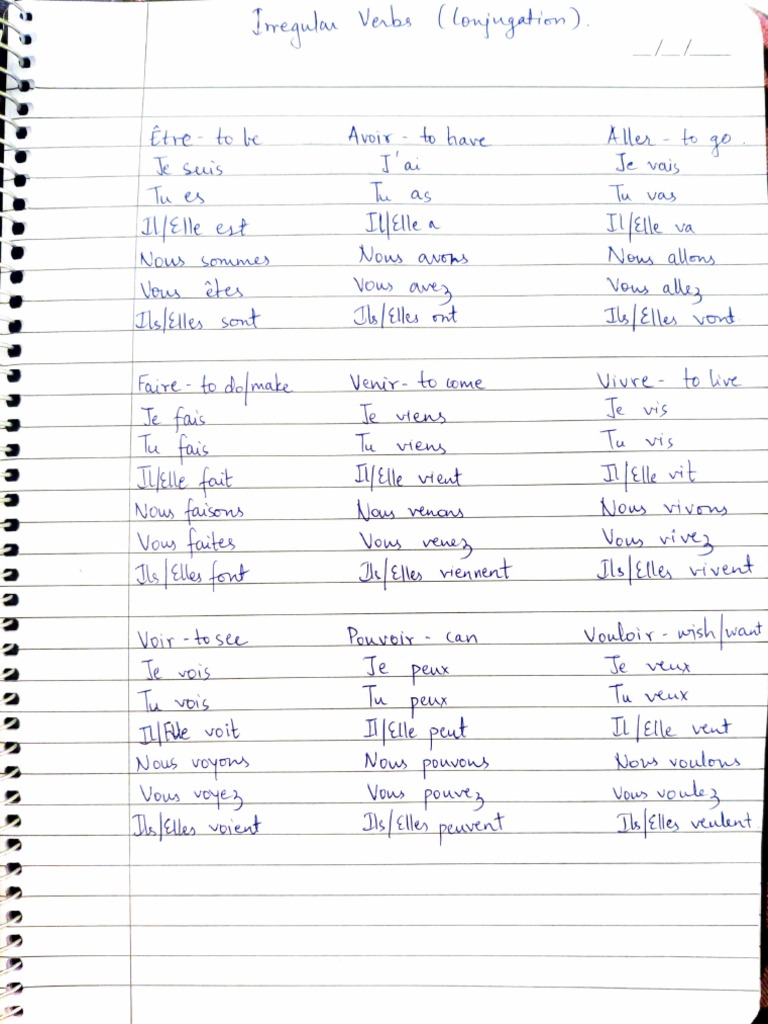 Irregular Verbs (Conjugation).
__/__/____
Être - to be Avoir - to have Aller - to go.
Je suis J'ai Je vais
Tu es Tu as Tu vas
Il/Elle est Il/Elle a Il/Elle va
Nous sommes Nous avons Nous allons
Vous êtes Vous avez Vous allez
Ils/Elles sont Ils/Elles ont Ils/Elles vont
Faire - to do/make Venir - to come Vivre - to live
Je fais Je viens Je vis
Tu fais Tu viens Tu vis
Il/Elle fait Il/Elle vient Il/Elle vit
Nous faisons Nous venons Nous vivons
Vous faites Vous venez Vous vivez
Ils/Elles font Ils/Elles viennent Ils/Elles vivent
Voir - to see Pouvoir - can Vouloir - wish/want
Je vois Je peux Je veux
Tu vois Tu peux Tu veux
Il/Elle voit Il/Elle peut Il/Elle veut
Nous voyons Nous pouvons Nous voulons
Vous voyez Vous pouvez Vous voulez
Ils/Elles voient Ils/Elles peuvent Ils/Elles veulent